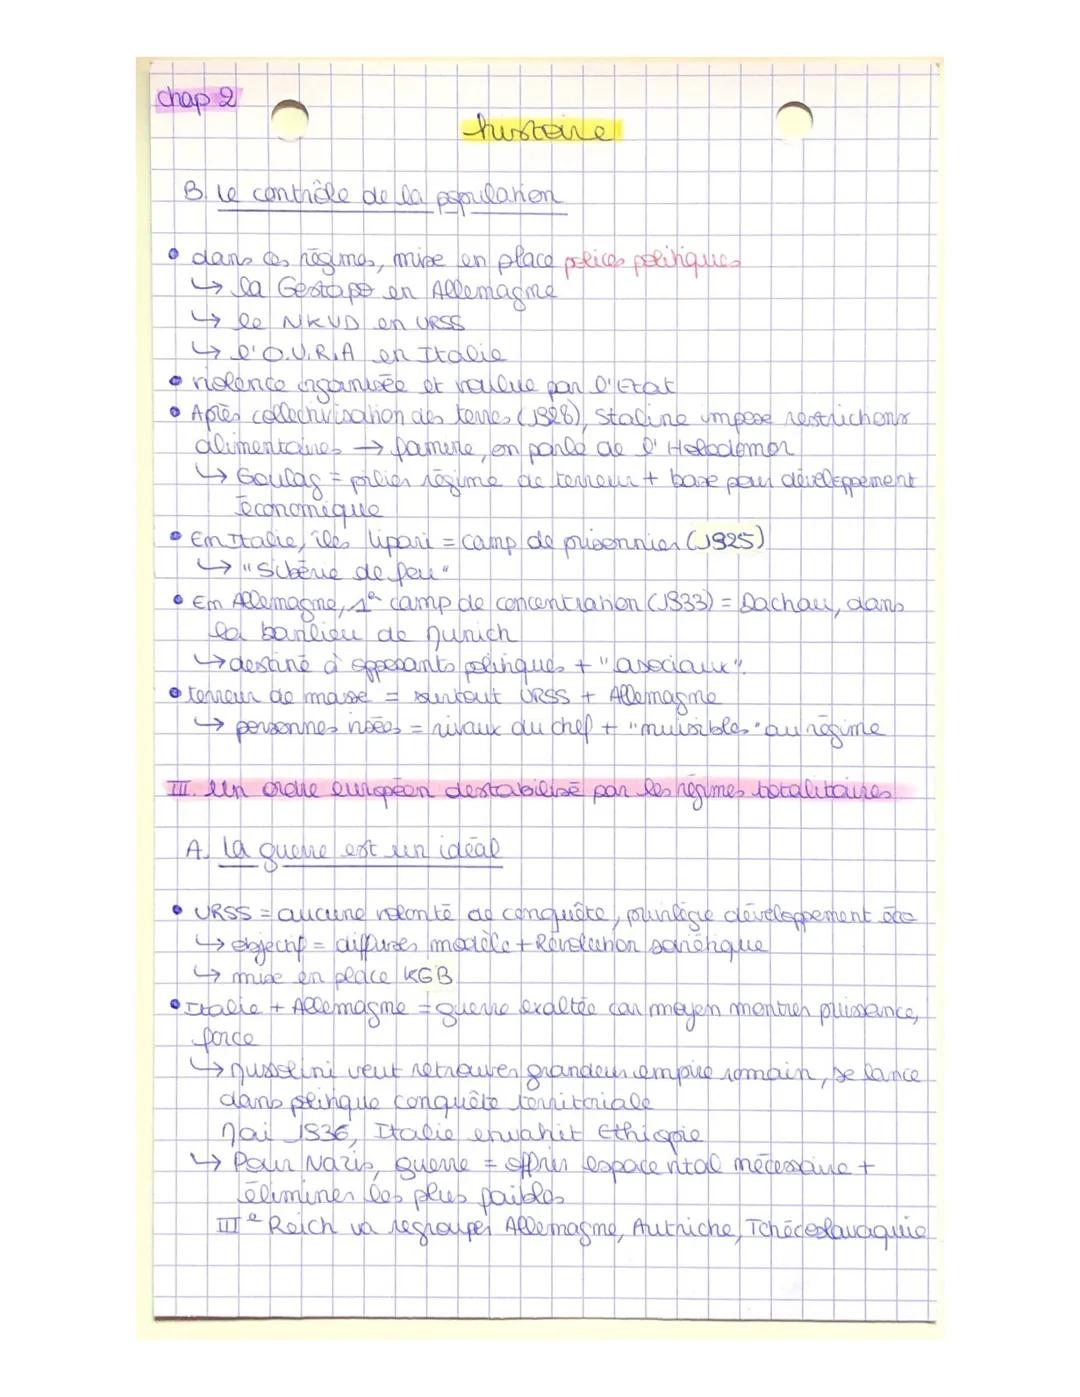 chap 2
histoire
B. le contrôle de la population
• dans ces régimes, mise en place polices politiques
↳ la Gestapo en Allemagne
↳ le NKVD en URSS
↳ l'O.V.R.A en Italie
• violence organisée et voulue par l'Etat
• Après collectivisation des terres (1928), Staline impose restrictions
alimentaires → famine, on parle de l'Holodomor
↳ Goulag = pilier régime de terreur + base pour développement
économique
• En Italie, îles lipari = camp de prisonnier (1925)
↳ "Sibérie de feu"
• En Allemagne, 1er camp de concentration (1933) = Dachau, dans
la banlieu de Munich
↳ destiné à opposants politiques + "asociaux".
• terreur de masse = surtout URSS + Allemagne
↳ personnes visées = rivaux du chef + "nuisibles" au régime
III. Un ordre européen destabilisé par les régimes totalitaires
A. La guerre est un idéal
• URSS = aucune volonté de conquête, privilégie développement éco
↳ objectif = diffuser modèle + Révolution soviétique
↳ mise en place KGB
• Italie + Allemagne = guerre exaltée car moyen montrer puissance,
force
↳ Mussolini veut retrouver grandeur empire romain, se lance
dans politique conquête territoriale
Mai 1936, Italie envahit Ethiopie
↳ Pour Nazis, guerre = offrir espace vital nécessaire +
éliminer les plus faibles
IIIe Reich va regrouper Allemagne, Autriche, Tchécoslavaquie